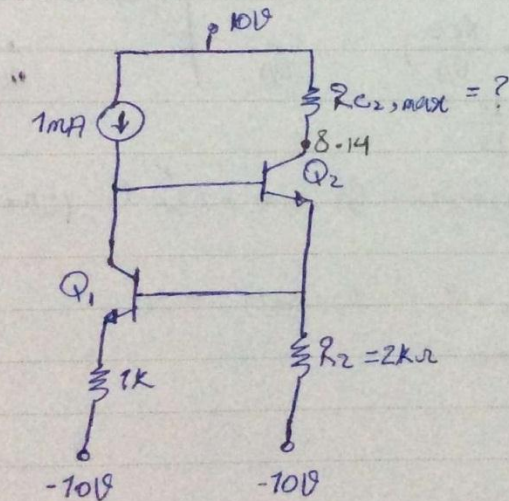 10V
1mA
Rc2, max = ?
8.14
Q2
Q1
1K
R2 = 2kΩ
-10V
-10V